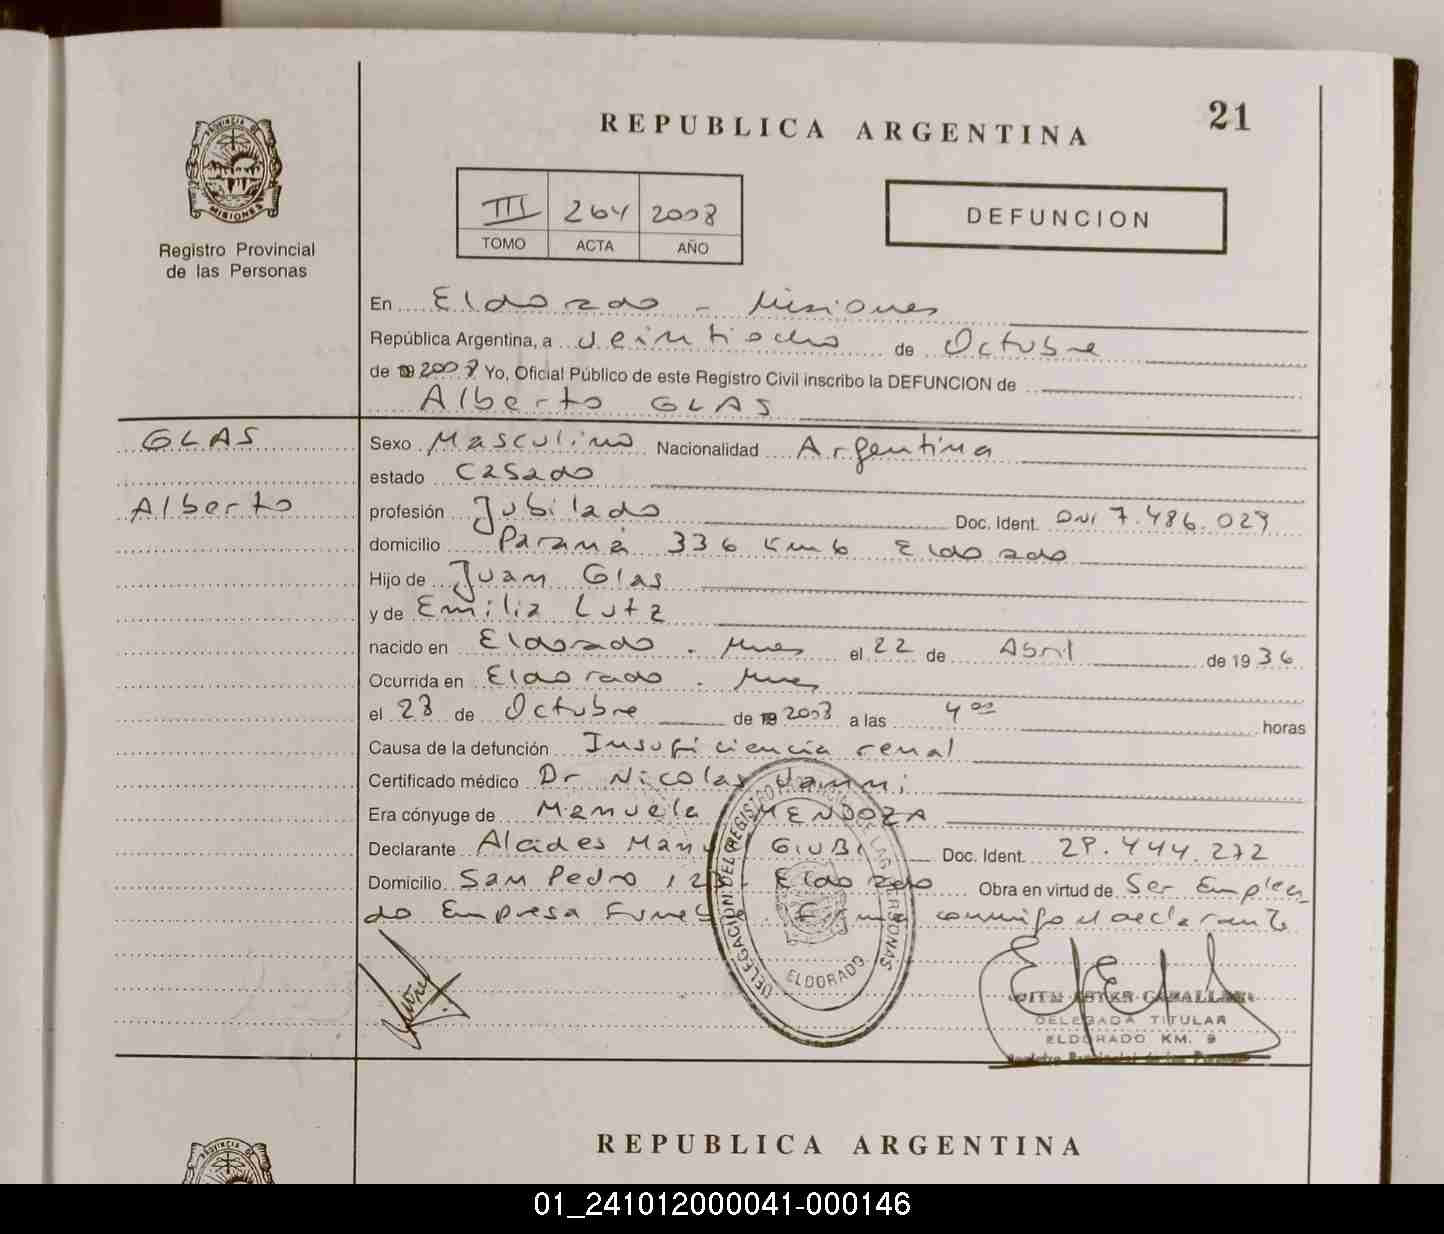 21
REPUBLICA ARGENTINA
PROVINCIA DE
MISIONES
Registro Provincial
de las Personas
III 264 2008
TOMO ACTA AÑO
DEFUNCION
En Eldorado - Misiones
República Argentina, a veintiocho de Octubre
de 2008 Yo, Oficial Público de este Registro Civil inscribo la DEFUNCION de
Alberto GLAS
GLAS
Alberto
Sexo Masculino Nacionalidad Argentina
estado Casado
profesión Jubilado Doc. Ident. DNI 7.486.029
domicilio Paraná 336 Km 6 Eldorado
Hijo de Juan Glas
y de Emilia Lutz
nacido en Eldorado - Mnes el 22 de Abril de 1936
Ocurrida en Eldorado - Mnes
el 23 de Octubre de 2008 a las 4 00 horas
Causa de la defunción Insuficiencia renal
Certificado médico Dr Nicolas
Era cónyuge de Manuela MENDOZA
Declarante Alcides GIUBI Doc. Ident. 28.444.272
Domicilio San Pedro Eldorado Obra en virtud de Ser Emplea
do Empresa conmigo el declarante
DELEGACION DEL REGISTRO PROVINCIAL DE LAS PERSONAS
ELDORADO
CABALLERO
DELEGADA TITULAR
ELDORADO KM. 9
Registro Provincial de las Personas
REPUBLICA ARGENTINA
PROVINCIA DE
01_241012000041-000146